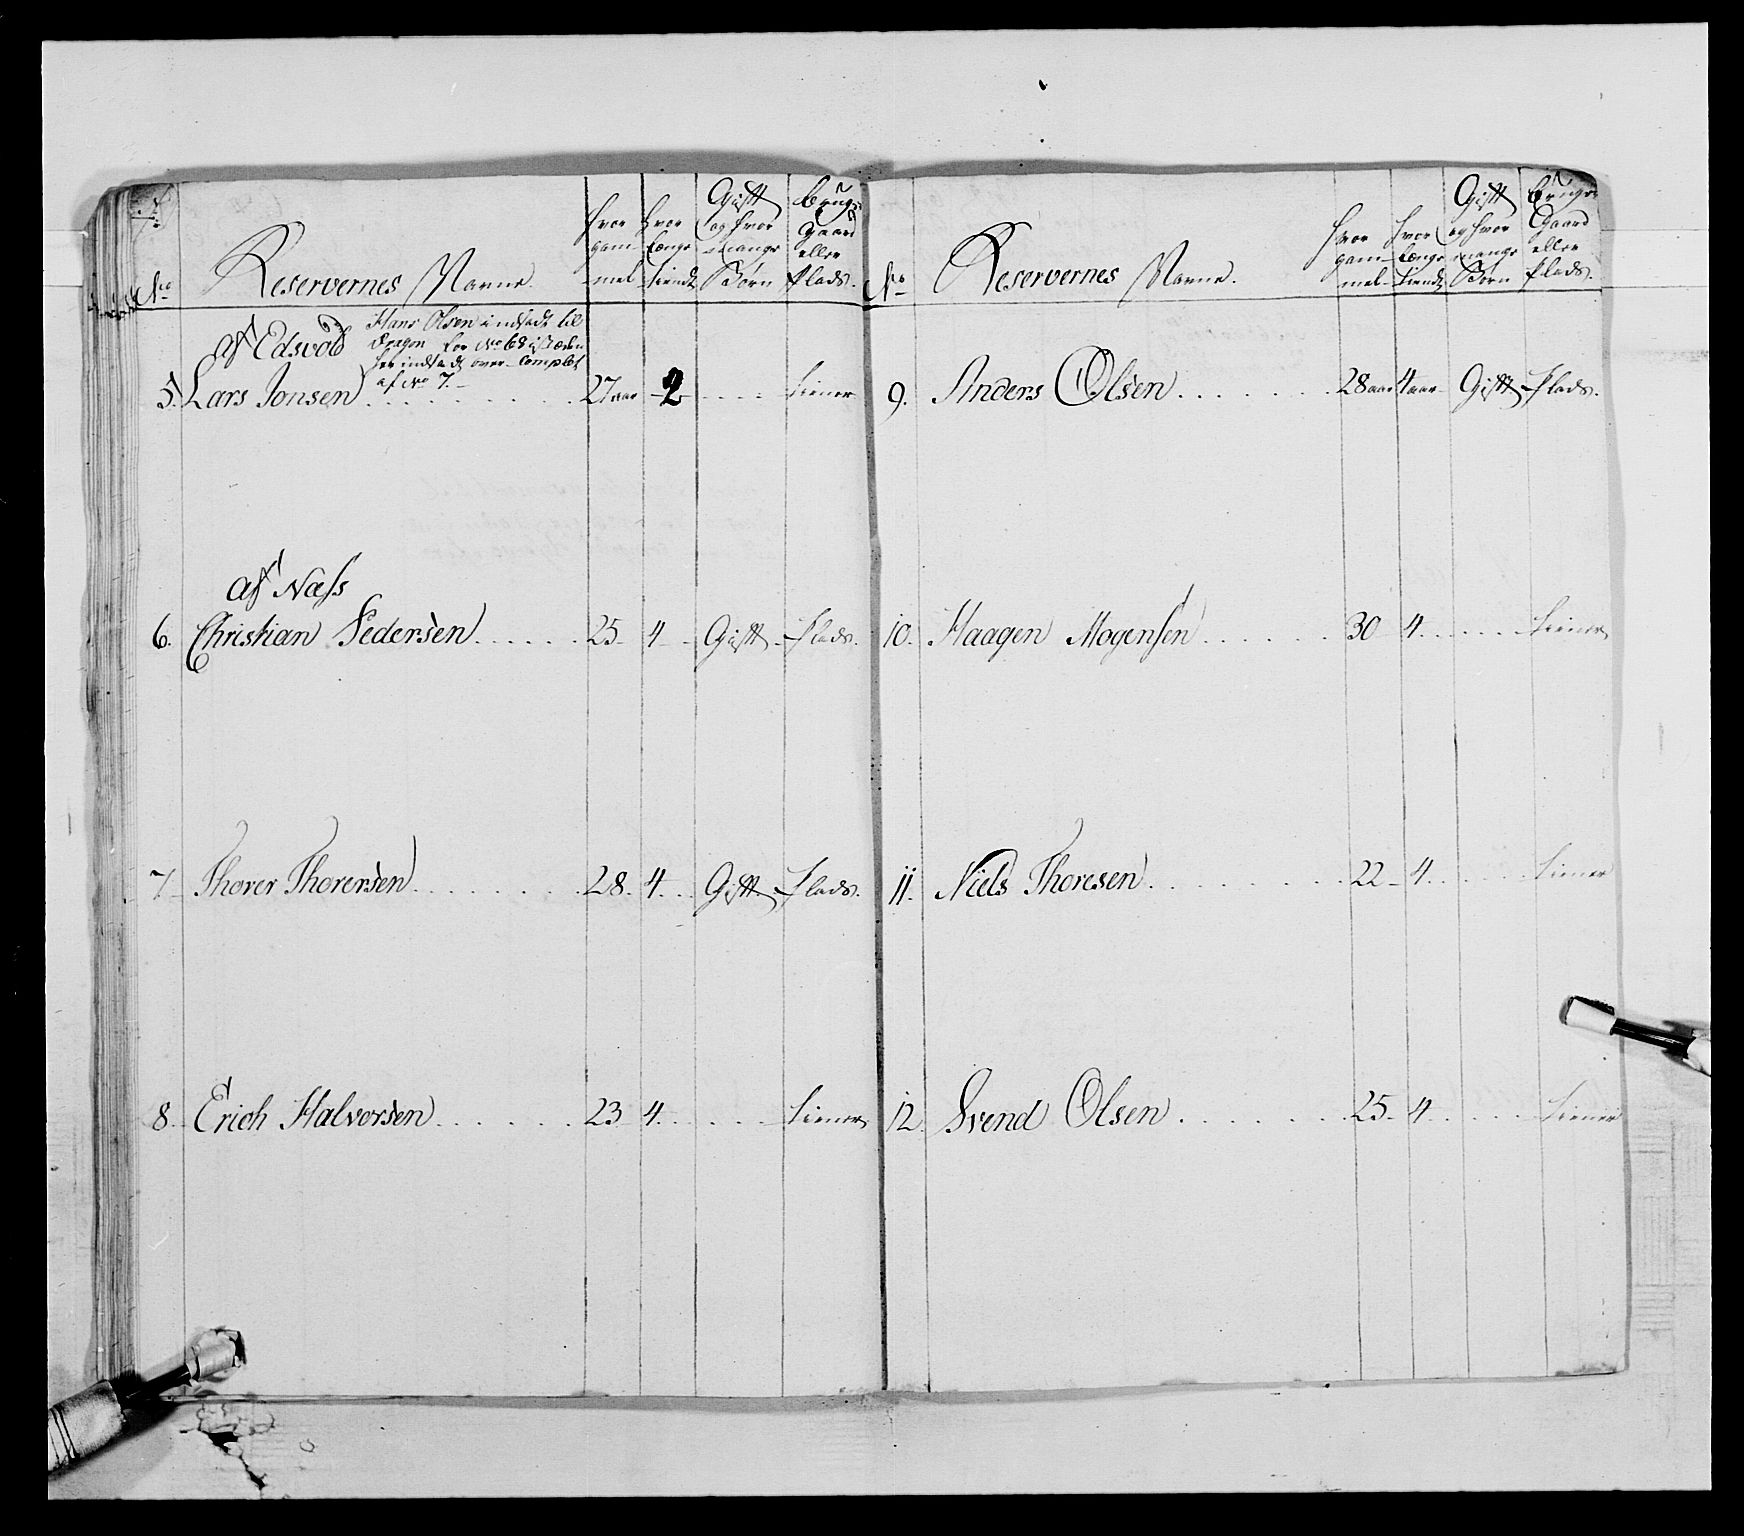 No Reservernes Navne. Hvor gam- mel Hvor længe tient Gift og hvor mange Børn bruger Gaard eller Plads.
af Edsvold
Hans Olsen indsadt til
Dragon for No 68 i Stæden
her indsadt over Complet
af No 7.
5. Lars Jonsen 27 aar 2 tiener
af Næss
6. Christian Pedersen 25 4 Gift Plads.
7 Thorer Thorersen 28. 4 Gift Plads.
8. Erich Halvorsen 23 4 tiener
No Reservernes Navne. Hvor gam- mel Hvor længe tient Gift og hvor mange Børn bruger Gaard eller Plads.
9. Anders Olsen 28 aar 4 aar Gift Plads.
10. Haagen Mogensen 30 4 tiener
11. Niels Thoresen 22 4 tiener
12. Svend Olsen 25 4 tiener